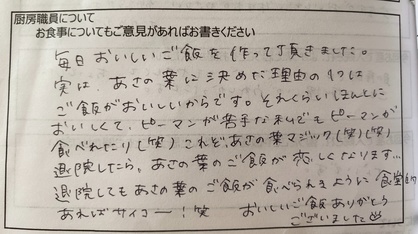 厨房職員について
お食事についてもご意見があればお書きください
毎日おいしいご飯を作って頂きました。
実は、あさの葉に決めた理由の1つは
ご飯がおいしいからです。それくらいほんとに
おいしくて、ピーマンが苦手な私でもピーマンが
食べれたり(笑) これぞあさの葉マジック(笑)(笑)
退院したら、あさの葉のご飯が恋しくなります…
退院してもあさの葉のご飯が食べられるように食堂
あればサイコー!笑 おいしいご飯ありがとう
ございました